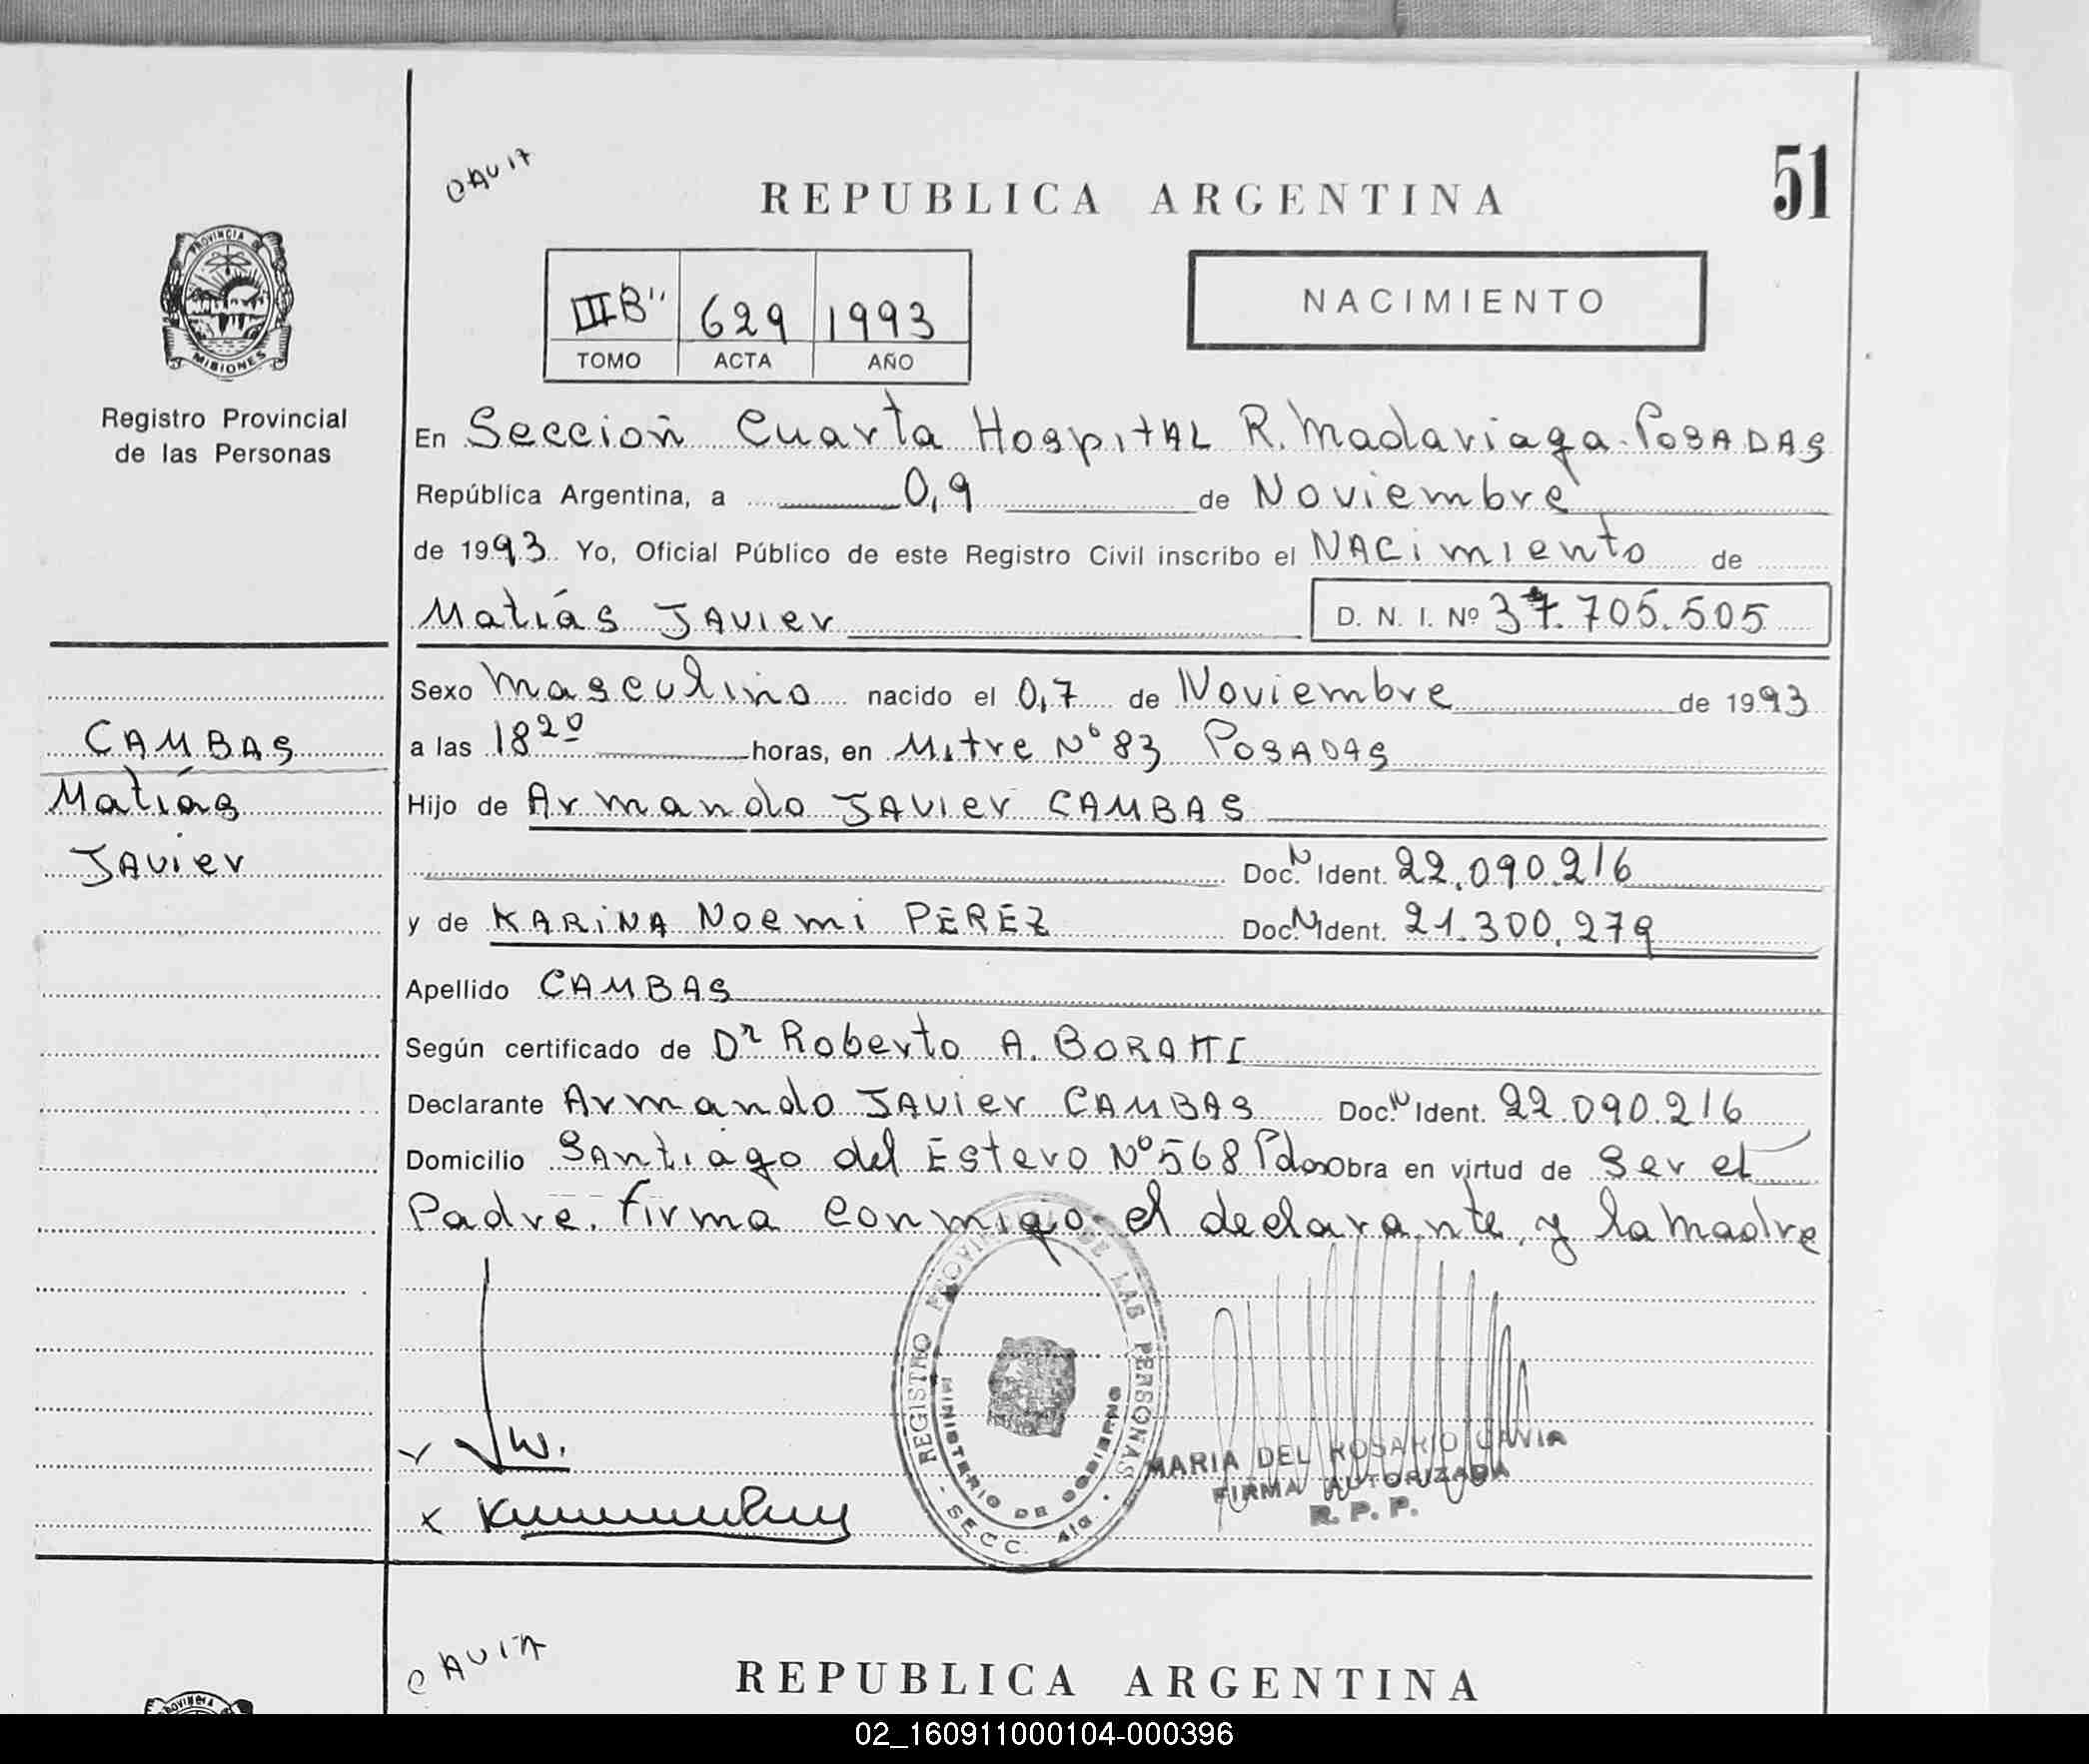 51
CAVIA
REPUBLICA ARGENTINA
PROVINCIA DE
MISIONES
Registro Provincial
de las Personas
III B" 629 1993
TOMO ACTA AÑO
NACIMIENTO
En Sección Cuarta Hospital R. Madariaga - Posadas
República Argentina, a 0,9 de Noviembre
de 1993 Yo, Oficial Público de este Registro Civil inscribo el Nacimiento de
Matías Javier D. N. I. Nº 37.705.505
Sexo Masculino nacido el 0,7 de Noviembre de 1993
CAMBAS
Matías
Javier
a las 18 20 horas, en Mitre Nº 83 Posadas
Hijo de Armando Javier CAMBAS
Doc. N Ident. 22.090.216
y de Karina Noemi PEREZ Doc. N Ident. 21.300.279
Apellido CAMBAS
Según certificado de Dr Roberto A.
Declarante Armando Javier CAMBAS Doc. N Ident. 22.090.216
Domicilio Santiago del Estero Nº 568 Pdas Obra en virtud de Ser el
Padre. firma conmigo el declarante, y la madre
REGISTRO PROVINCIAL DE LAS PERSONAS
MINISTERIO DE GOBIERNO
SECC. 4ta.
MARIA DEL ROSARIO CAVIA
FIRMA AUTORIZADA
R. P. P.
CAVIA
REPUBLICA ARGENTINA
PROVINCIA
02_160911000104-000396